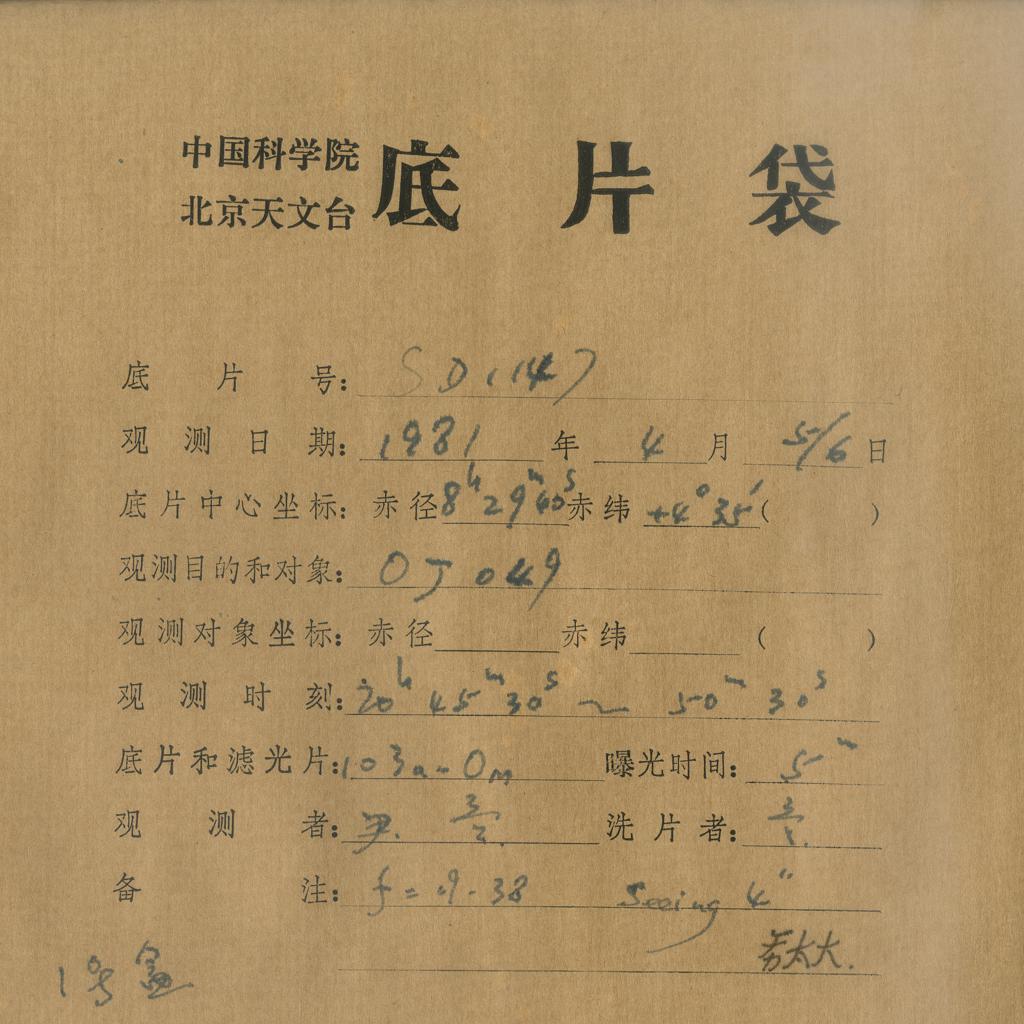 中国科学院
北京天文台
底片袋
底片号: SD1147
观测日期: 1981年 4月 5/6日
底片中心坐标: 赤径 8h 29m 40s 赤纬 +4° 35′ ( )
观测目的和对象: OJ 049
观测对象坐标: 赤径 赤纬 ( )
观测时刻: 20h 45m 30s ~ 50m 30s
底片和滤光片: 103a-O 曝光时间: 5m
观测者: 洗片者:
备注: f= 9.38 Seeing 4″
太大.
1号盒